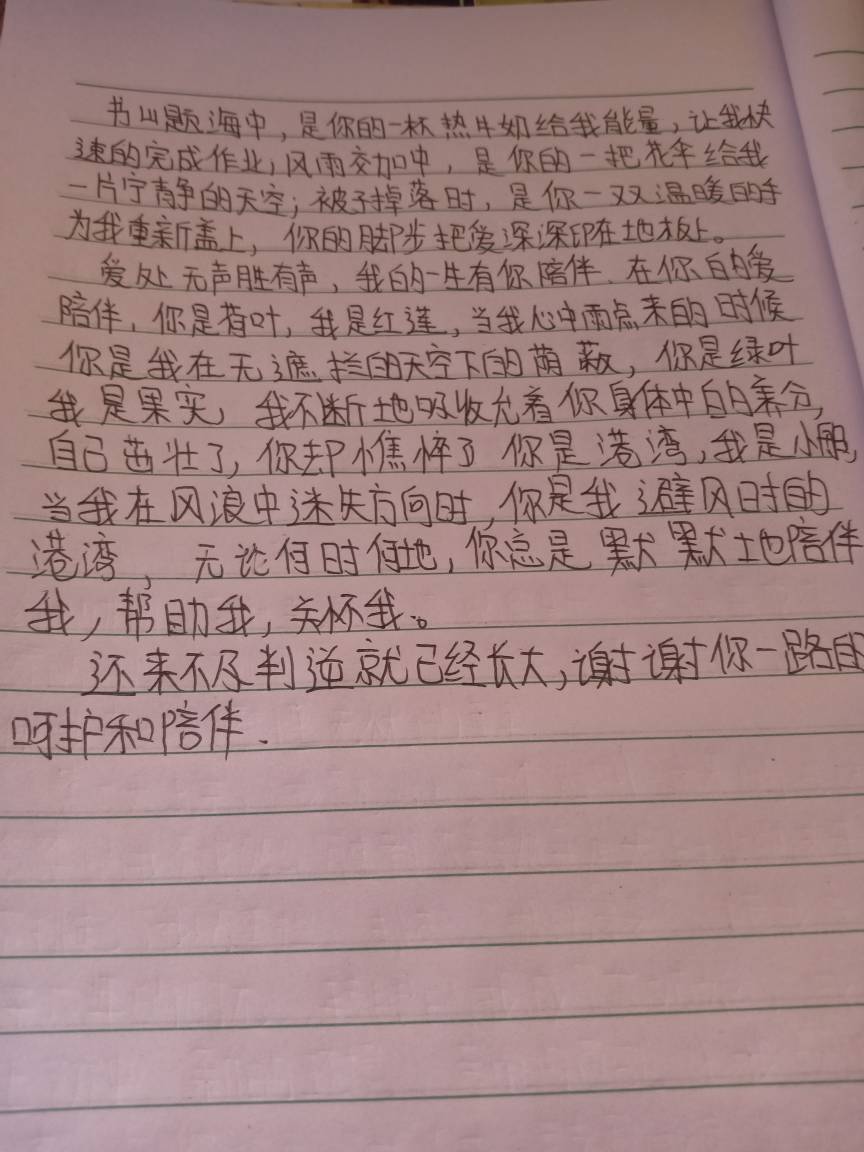 书山题海中，是你的一杯热牛奶给我能量，让我快
速的完成作业，风雨交加中，是你的一把花伞给我
一片宁静的天空；被子掉落时，是你一双温暖的手
为我重新盖上，你的脚步把爱深深印在地板上。
爱处无声胜有声，我的一生有你陪伴、在你的爱
陪伴，你是荷叶，我是红莲，当我心中雨点来的时候
你是我在无遮拦的天空下的荫蔽，你是绿叶
我是果实，我不断地吸收着你身体中的养分，
自己茁壮了，你却憔悴了 你是港湾，我是小船，
当我在风浪中迷失方向时，你是我避风时的
港湾，无论何时何地，你总是默默地陪伴
我，帮助我，关怀我。
还来不及判逆就已经长大，谢谢你一路的
呵护和陪伴.